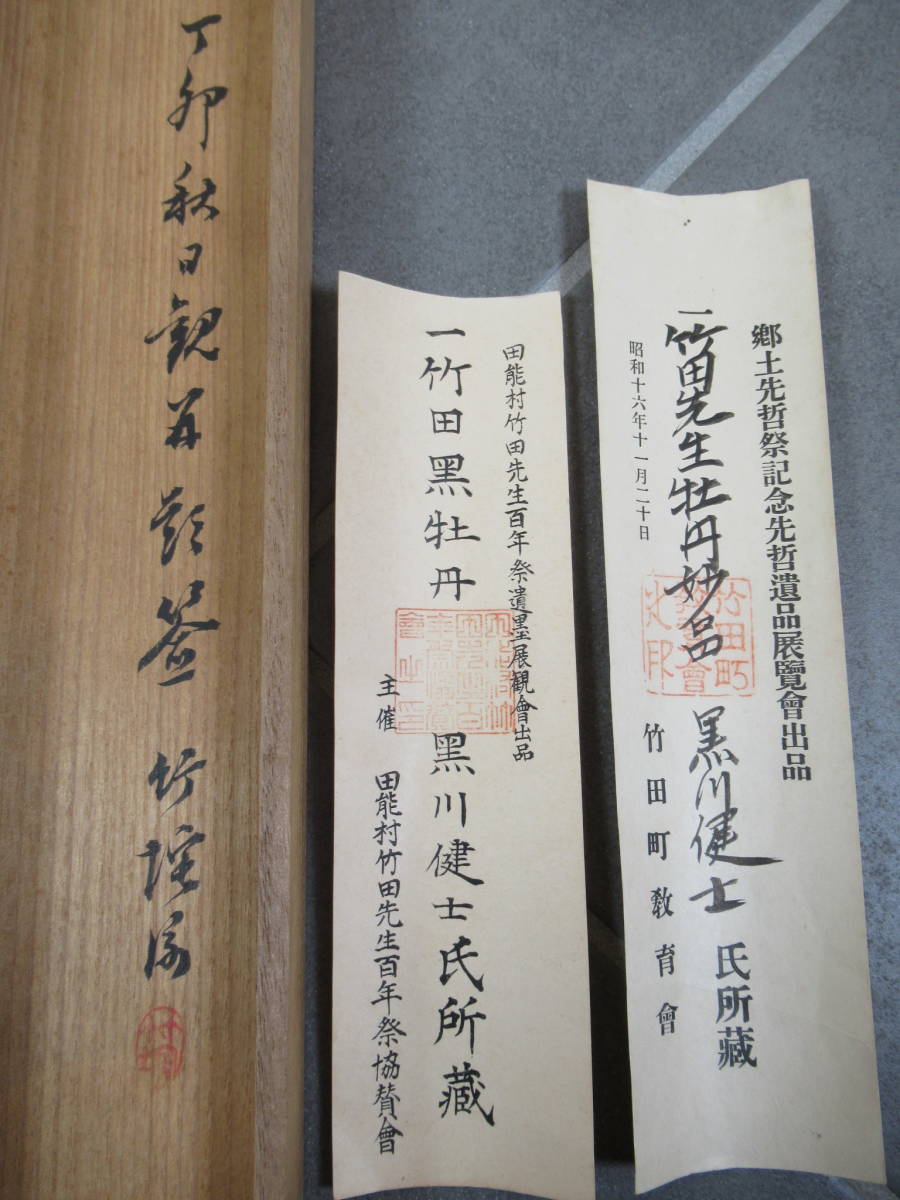 鄕土先哲祭記念先哲遺品展覽會出品
一竹田先生牡丹妙品 黒川健士 氏所藏
昭和十六年十一月二十日 竹田町敎育會
田能村竹田先生百年祭遺墨展観會出品
一竹田黑牡丹 黑川健士氏所藏
主催 田能村竹田先生百年祭協賛會
丁卯秋日観并題簽 竹